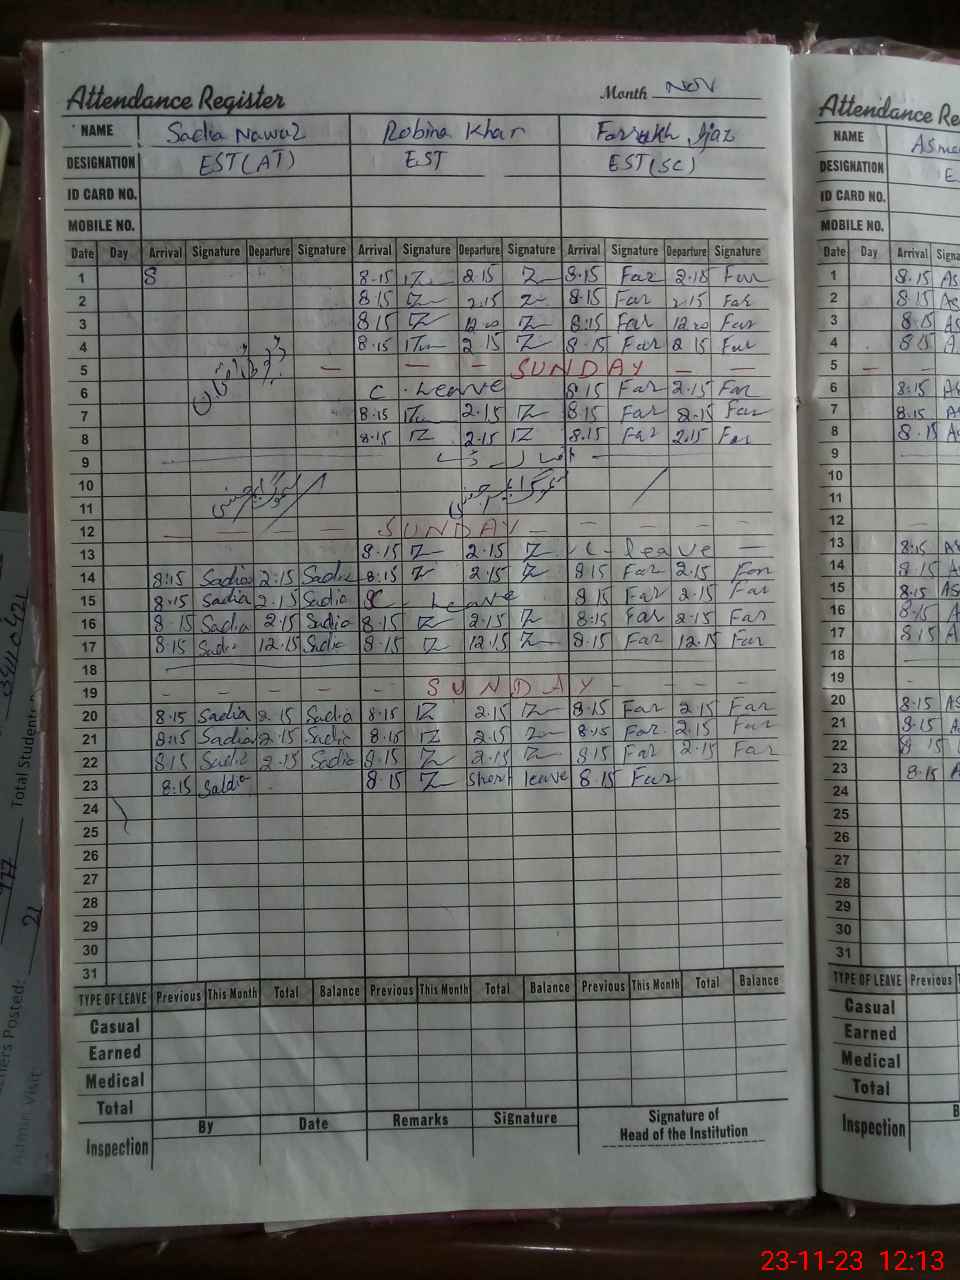 Attendance Register Month Nov
NAME Sadia Nawaz Robina Khan Farrukh Ijaz
DESIGNATION EST (AT) EST EST (SC)
ID CARD NO.
MOBILE NO.
Date Day Arrival Signature Departure Signature Arrival Signature Departure Signature Arrival Signature Departure Signature
1 8 8.15 2.15 8.15 Far 2.15 Far
2 8.15 2.15 8.15 Far 2.15 Far
3 8.15 12 8.15 Far 12 Far
4 8.15 2.15 8.15 Far 2.15 Far
5 SUNDAY
6 C. Leave 8.15 Far 2.15 Far
7 8.15 2.15 8.15 Far 2.15 Far
8 8.15 2.15 8.15 Far 2.15 Far
9
10
11
12 SUNDAY
13 8.15 2.15 C - leave
14 8:15 Sadia 2.15 Sadia 8.15 2.15 8.15 Far 2.15 Far
15 8.15 Sadia 2.15 Sadia Leave 8.15 Far 2.15 Far
16 8.15 Sadia 2.15 Sadia 8.15 2.15 8.15 Far 2.15 Far
17 8.15 Sadia 12.15 Sadia 8.15 12.15 8.15 Far 12.15 Far
18
19 SUNDAY
20 8.15 Sadia 2.15 Sadia 8.15 2.15 8.15 Far 2.15 Far
21 8:15 Sadia 2.15 Sadia 8.15 2.15 8.15 Far 2.15 Far
22 8.15 Sadia 2.15 Sadia 8.15 2.15 8.15 Far 2.15 Far
23 8.15 Sadia 8.15 Short leave 8.15 Far
24
25
26
27
28
29
30
31
TYPE OF LEAVE Previous This Month Total Balance Previous This Month Total Balance Previous This Month Total Balance
Casual
Earned
Medical
Total
Inspection By Date Remarks Signature Signature of
Head of the Institution
Attendance Re
NAME Asma
DESIGNATION E
ID CARD NO.
MOBILE NO.
Date Day Arrival Signa
1 8.15 As
2 8.15 As
3 8.15 As
4 8.15 A
5
6 8:15 A
7 8.15 A
8 8.15 A
9
10
11
12
13 8:15 A
14 8.15 A
15 8.15 AS
16 8.15 A
17 8.15 A
18
19
20 8.15 AS
21 8.15 AS
22 8.15
23 8.15 A
24
25
26
27
28
29
30
31
TYPE OF LEAVE Previous T
Casual
Earned
Medical
Total
Inspection B
Total Student
hers Posted: 21
Admin Visit:
23-11-23 12:13